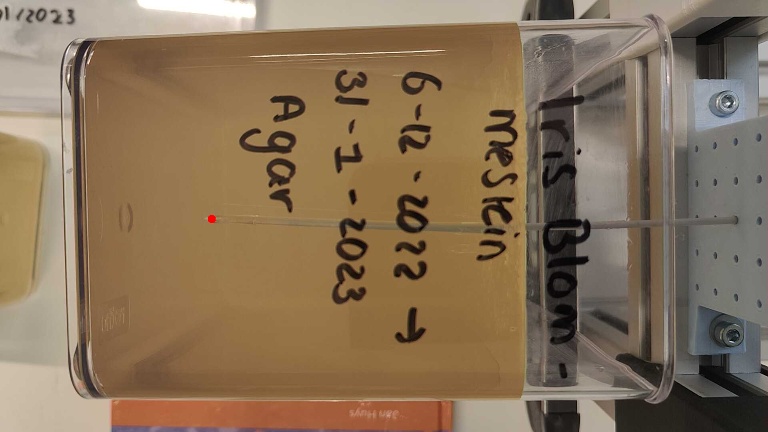 01/2023
Iris Blom-
mestein
6-12-2022 →
31-1-2023
Agar
Jan Huys